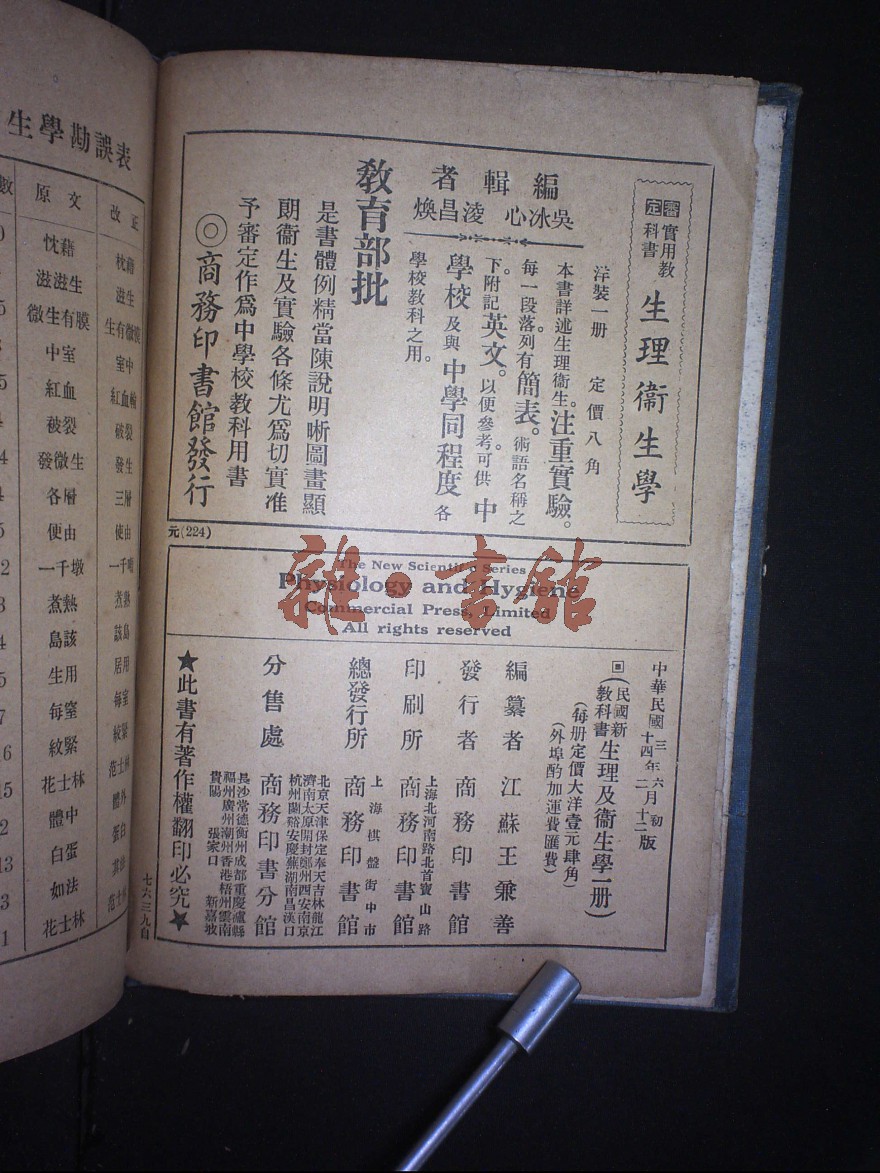 審定
實用教科書
生理衞生學
洋裝一册 定價八角
本書詳述生理衞生。注重實驗。
每一段落。列有簡表。術語名稱之
下。附記英文。以便參考。可供中
學校及與中學同程度各
學校教科之用。
編輯者
吳冰心 淩昌煥
教育部批
是書體例精當陳說明晰圖畫顯
朗衞生及實驗各條尤爲切實准
予審定作爲中學校教科用書
◎商務印書館發行
元(224)
The New Scientific Series
Physiology and Hygiene
Commercial Press, Limited
All rights reserved
雜·書館
中華民國三年六月初版
十四年二月十二版
民國新教科書
生理及衞生學一册
(每册定價大洋壹元肆角)
(外埠酌加運費匯費)
編纂者 江蘇王兼善
發行者 商務印書館
上海北河南路北首寶山路
印刷所 商務印書館
上海棋盤街中市
總發行所 商務印書館
分售處 商務印書分館
北京天津保定奉天吉林龍江
濟南太原開封鄭州西安南京
杭州蘭谿安慶蕪湖南昌漢口
長沙常德衡州成都重慶瀘縣
福州廣州潮州香港梧州雲南
貴陽 張家口 新嘉坡
★此書有著作權翻印必究★
七六三九自
生學勘誤表
數 原文 改正
忱藉 枕藉
滋滋生 滋生
微生有膜 生有微膜
中室 室中
紅血 紅血輪
被裂 破裂
發微生 發生
各層 三層
便由 使由
一千墩
煮熱 煮熟
島該 該島
生用 居用
每窒 每室
紋緊 絞緊
花士林 范士林
體中 體外
白蛋 蛋白
如法
花士林 范士林